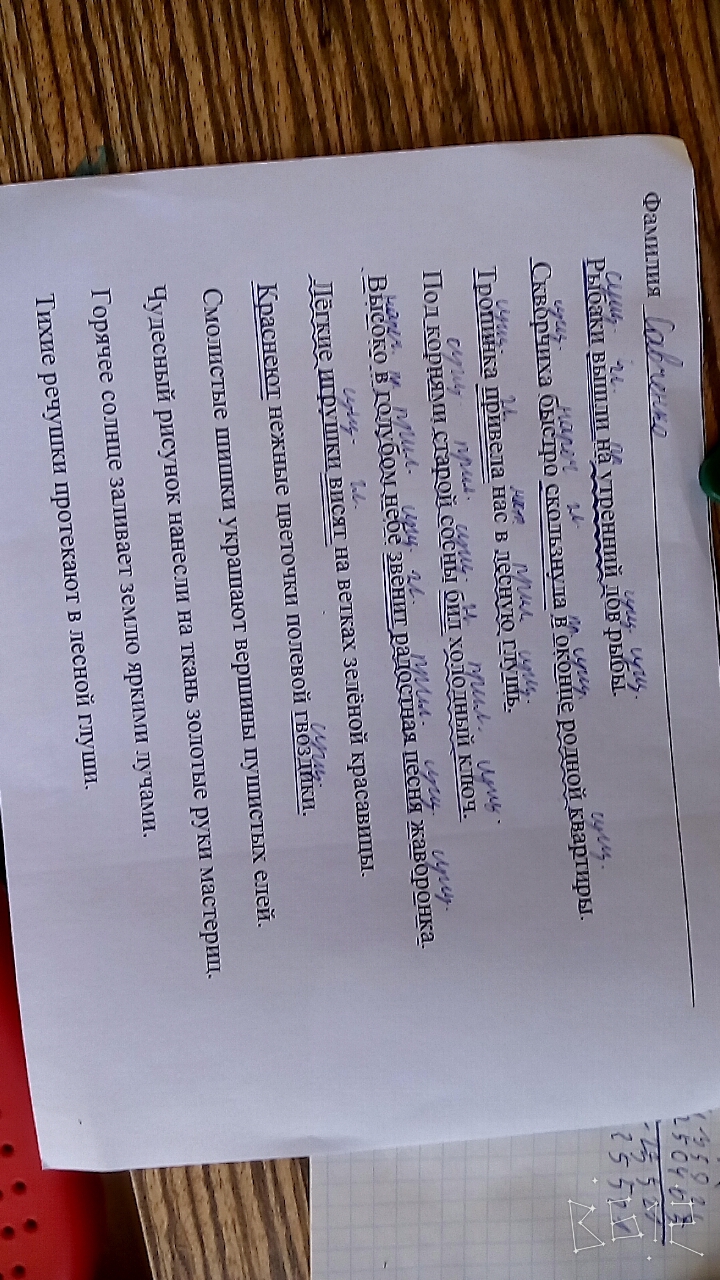 Фамилия Савченко
сущ. гл. п. сущ. сущ.
Рыбаки вышли на утренний лов рыбы.
сущ. нареч гл. п сущ. сущ.
Скворчиха быстро скользнула в оконце родной квартиры.
сущ. гл. мест прил сущ.
Тропинка привела нас в лесную глушь.
сущ. прил. сущ. гл. прил. сущ.
Под корнями старой сосны бил холодный ключ.
нареч п прил. сущ. гл. прил. сущ сущ.
Высоко в голубом небе звенит радостная песня жаворонка.
сущ. гл.
Лёгкие игрушки висят на ветках зелёной красавицы.
сущ.
Краснеют нежные цветочки полевой гвоздики.
Смолистые шишки украшают вершины пушистых елей.
Чудесный рисунок нанесли на ткань золотые руки мастериц.
Горячее солнце заливает землю яркими лучами.
Тихие речушки протекают в лесной глуши.